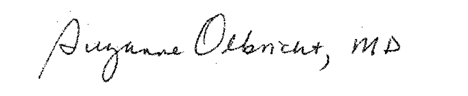 Suzanne Olbricht, MD